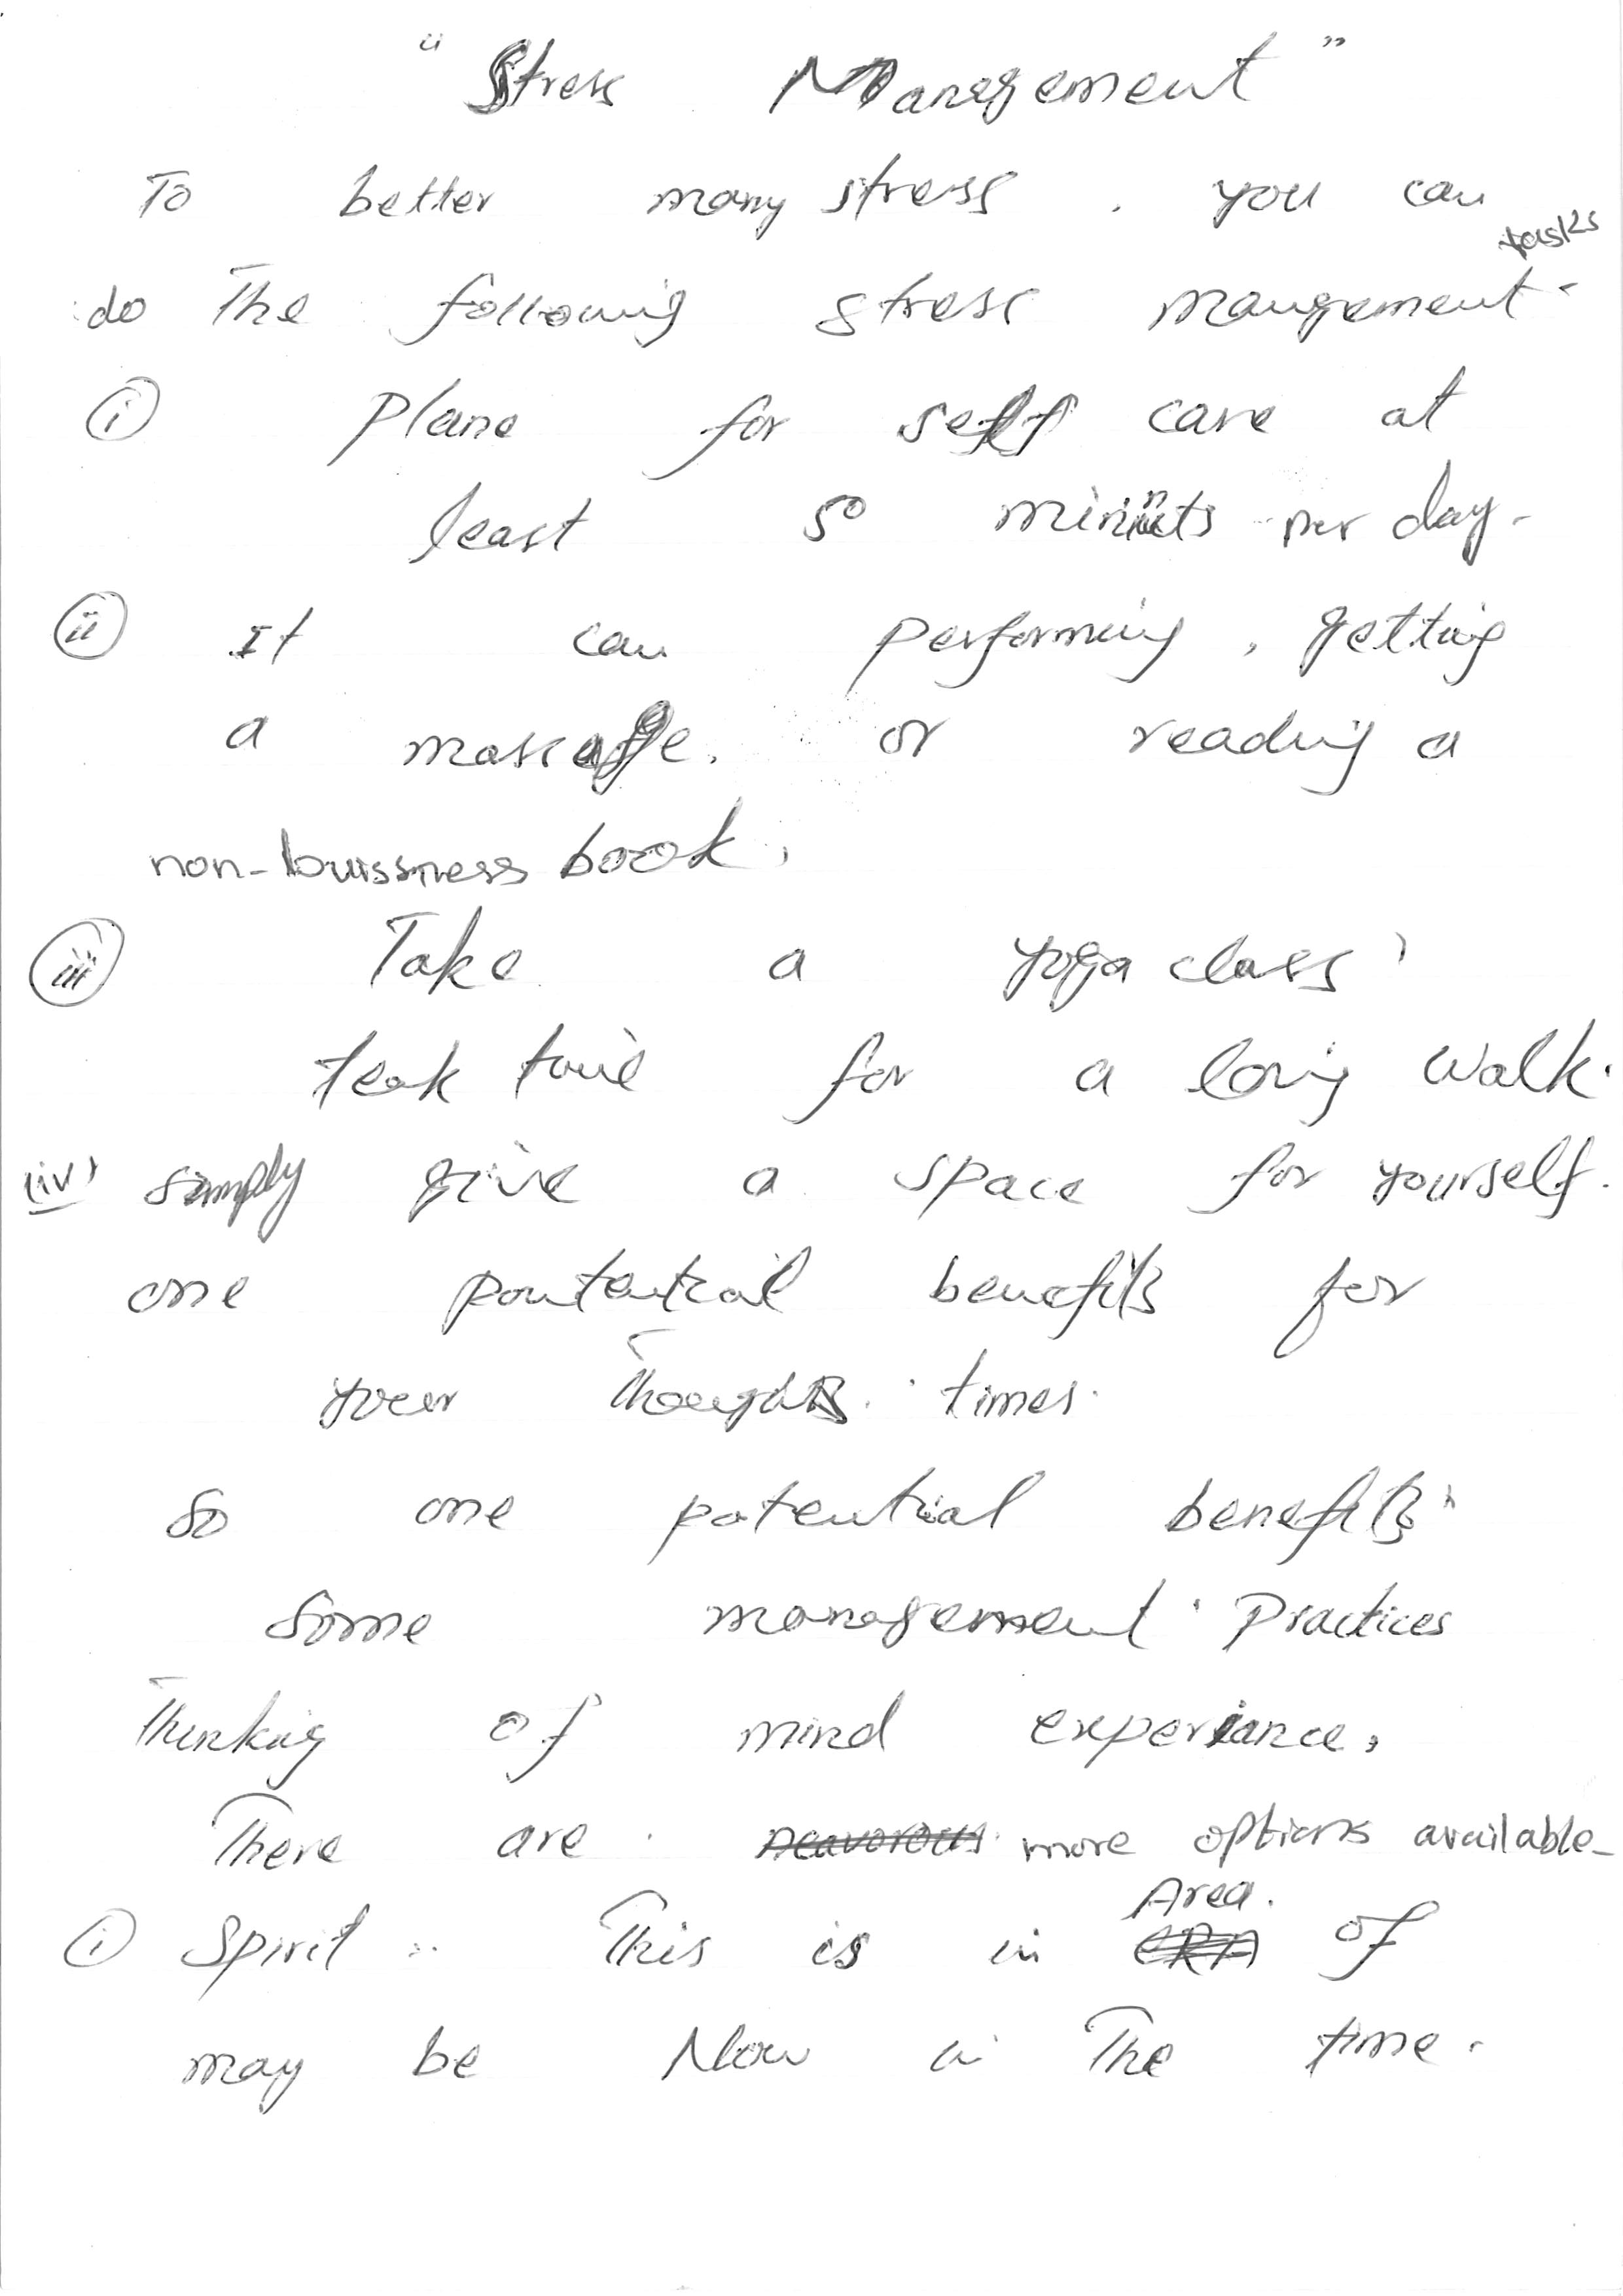 “ Stress Management ”
To better many stress . you can
tasks
do The following stress mangement -
i Plane for self care at
least 50 minnts per day -
ii It can performing , getting
a massage . or reading a
non-buissness book ,
iii Take a yoga class ,
teak time for a long walk .
(iv) simply give a space for yourself .
one pontential benefits for
your Thoughts . times .
So one potential benefits .
Some management . Practices
Thinking of mind experiance ,
There are . more options available -
Area .
i Spirit .. This is in of
may be Now in The time .